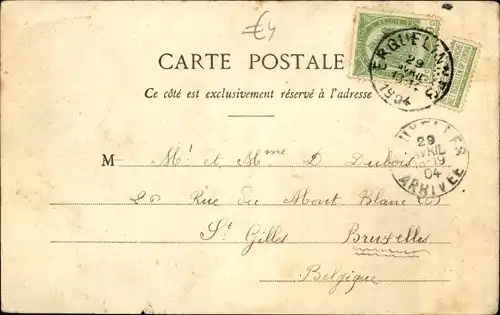 €4
CARTE POSTALE
Ce côté est exclusivement réservé à l'adresse
ERQUELINNES
29
AVRIL
1904
29
AVRIL
04
ARRIVÉE
M Mr et Mme D Dubois
26 Rue du Mont Blanc
St Gilles Bruxelles
Belgique